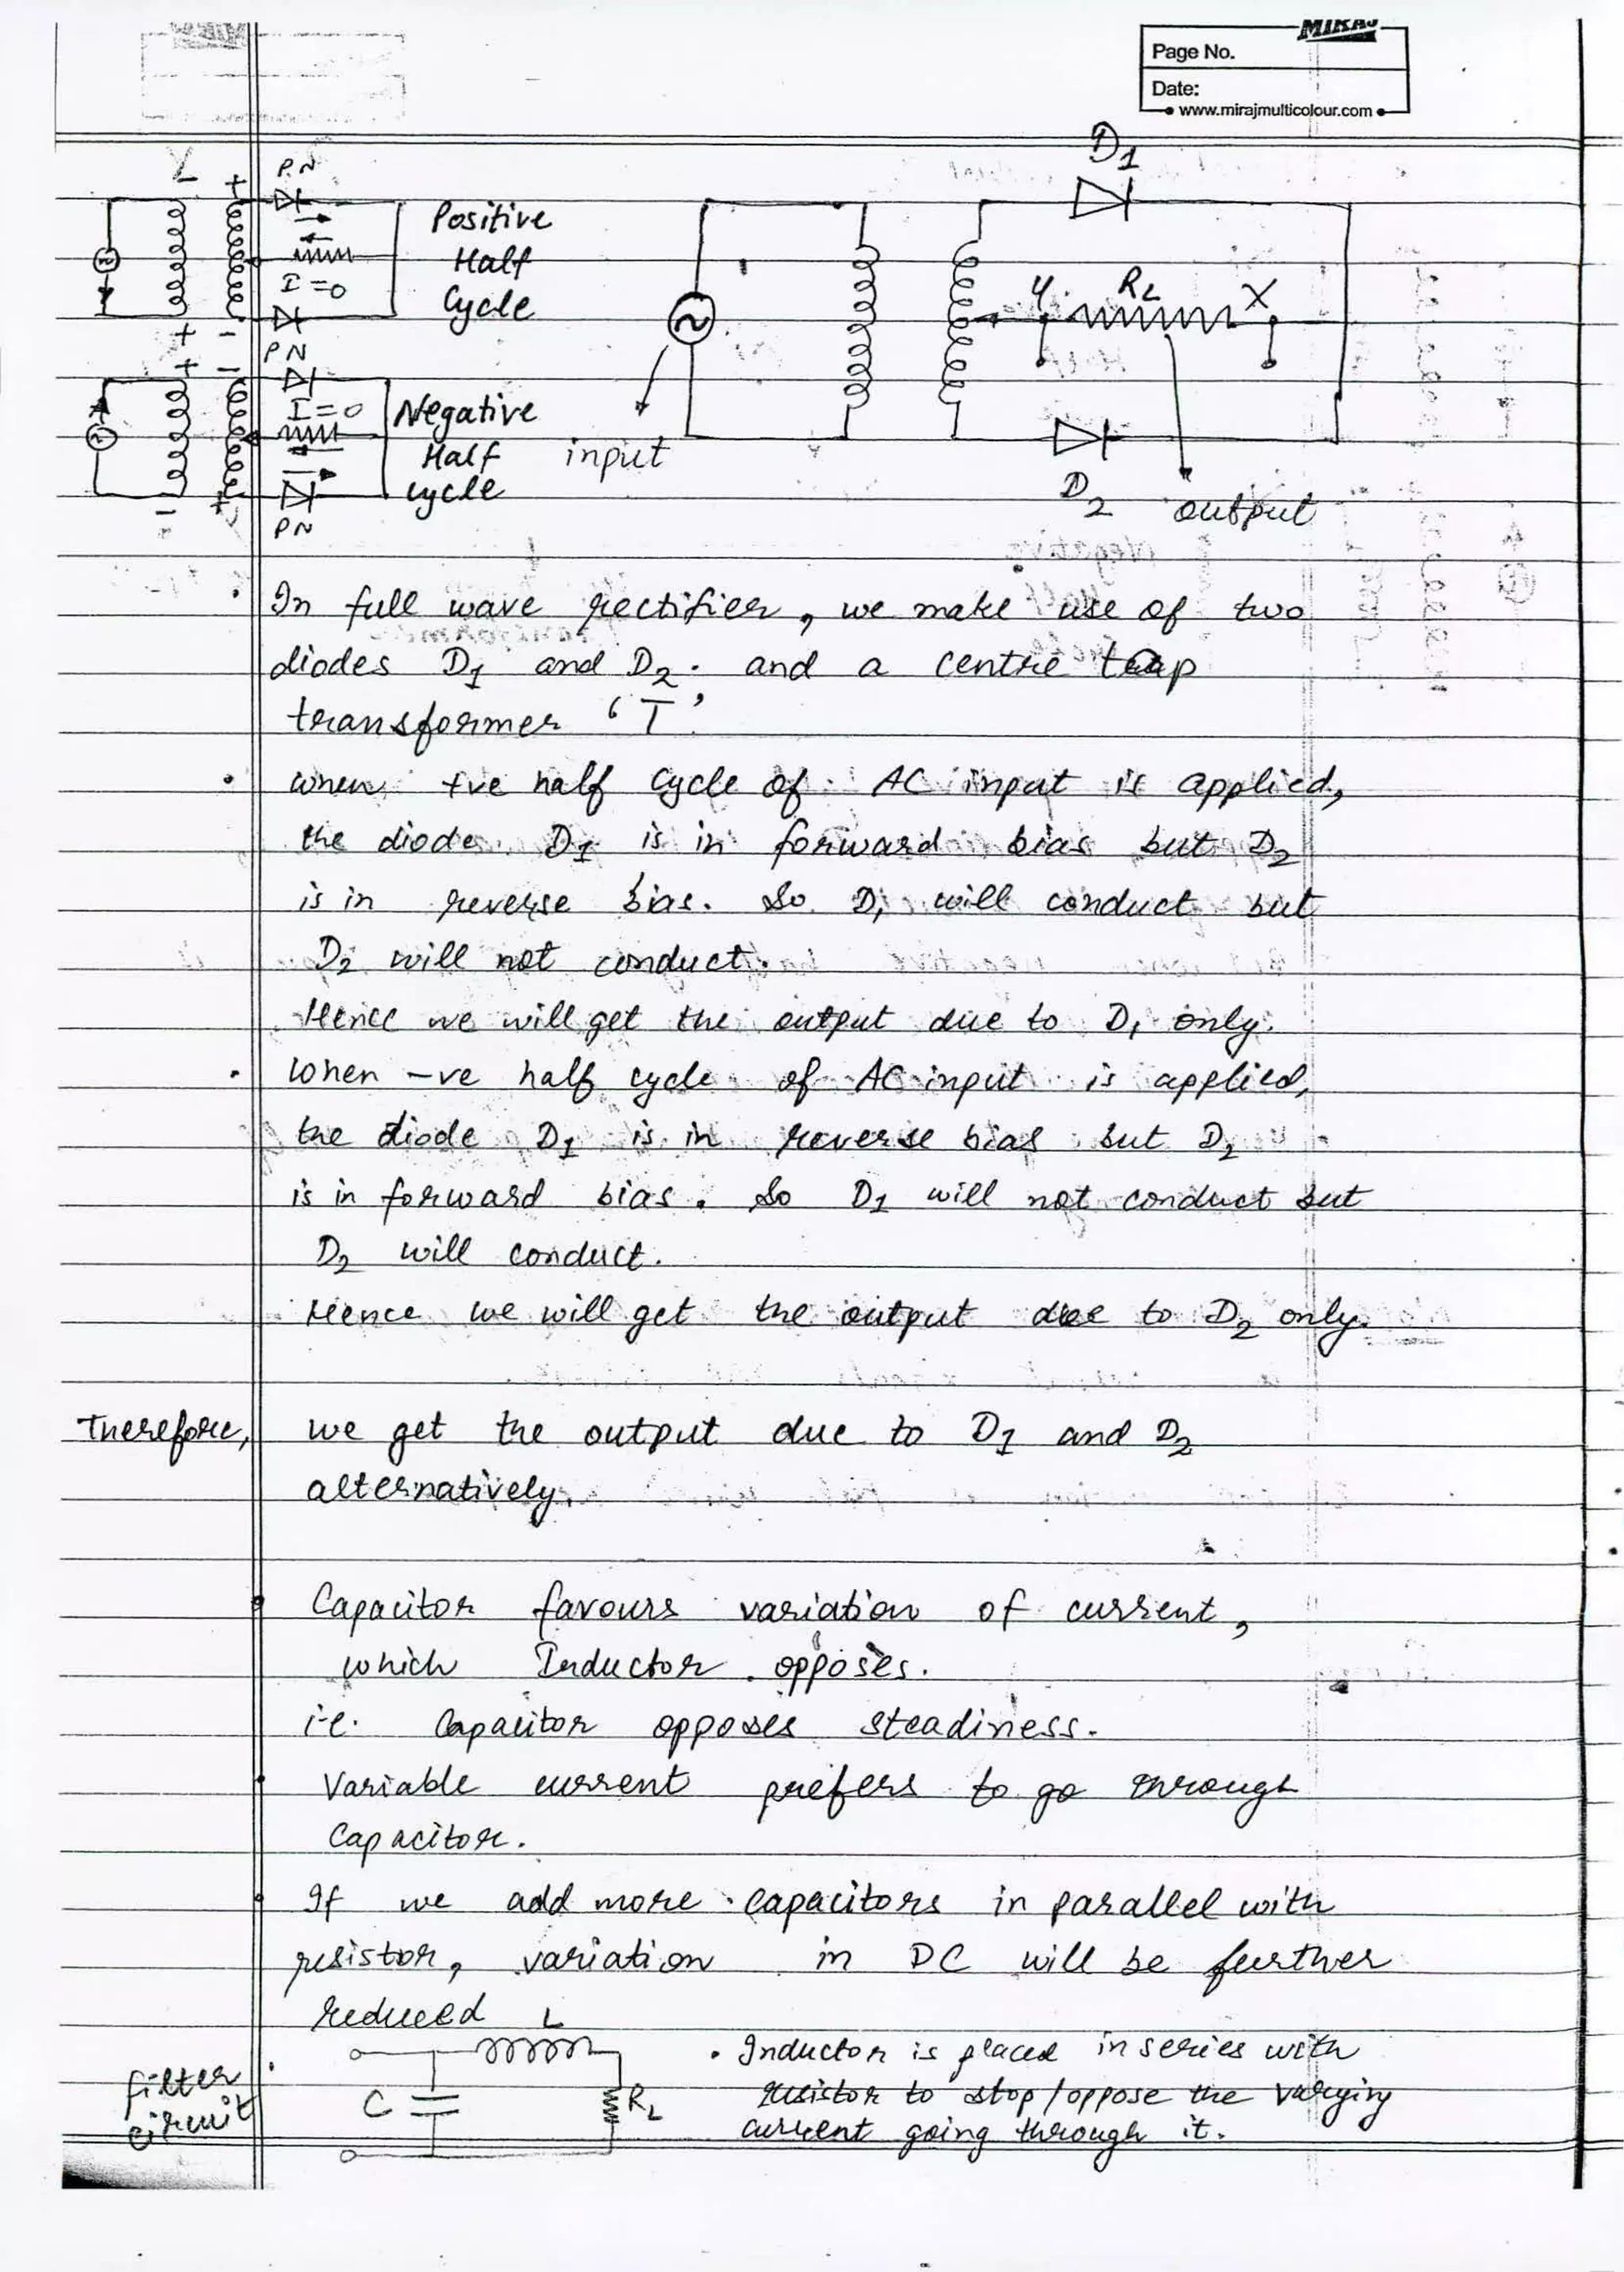 MIRAJ
Page No.
Date:
www.mirajmulticolour.com
P N
+
Positive
Half
Cycle
I = 0
+ -
P N
+ -
I = 0
Negative
Half
cycle
- +
P N
D1
Y RL X
input
D2 output
In full wave rectifier, we make use of two
diodes D1 and D2. and a centre tap
transformer 'T'.
• when +ve half cycle of AC input is applied,
the diode D1 is in forward bias but D2
is in reverse bias. So D1 will conduct but
D2 will not conduct.
Hence we will get the output due to D1 only.
• When -ve half cycle of AC input is applied,
the diode D1 is in reverse bias but D2
is in forward bias. So D1 will not conduct but
D2 will conduct.
Hence we will get the output due to D2 only.
Therefore, we get the output due to D1 and D2
alternatively.
• Capacitor favours variation of current,
which Inductor opposes.
i.e. Capacitor opposes steadiness.
• Variable current prefers to go through
Capacitor.
• If we add more capacitors in parallel with
resistor, variation in DC will be further
reduced
filter
circuit
L
C
RL
• Inductor is placed in series with
resistor to stop/oppose the varying
current going through it.